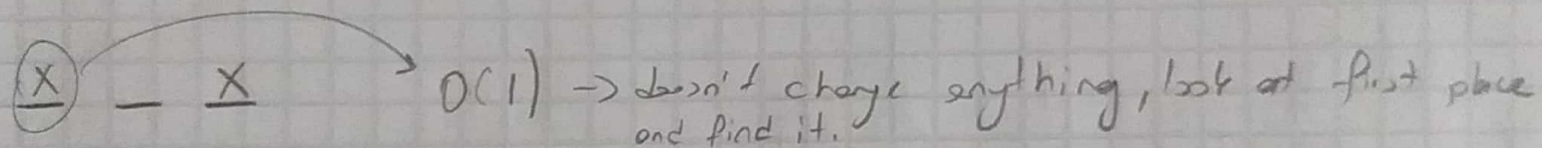 X _ X O(1) → doesn't change anything, look at first place
and find it.